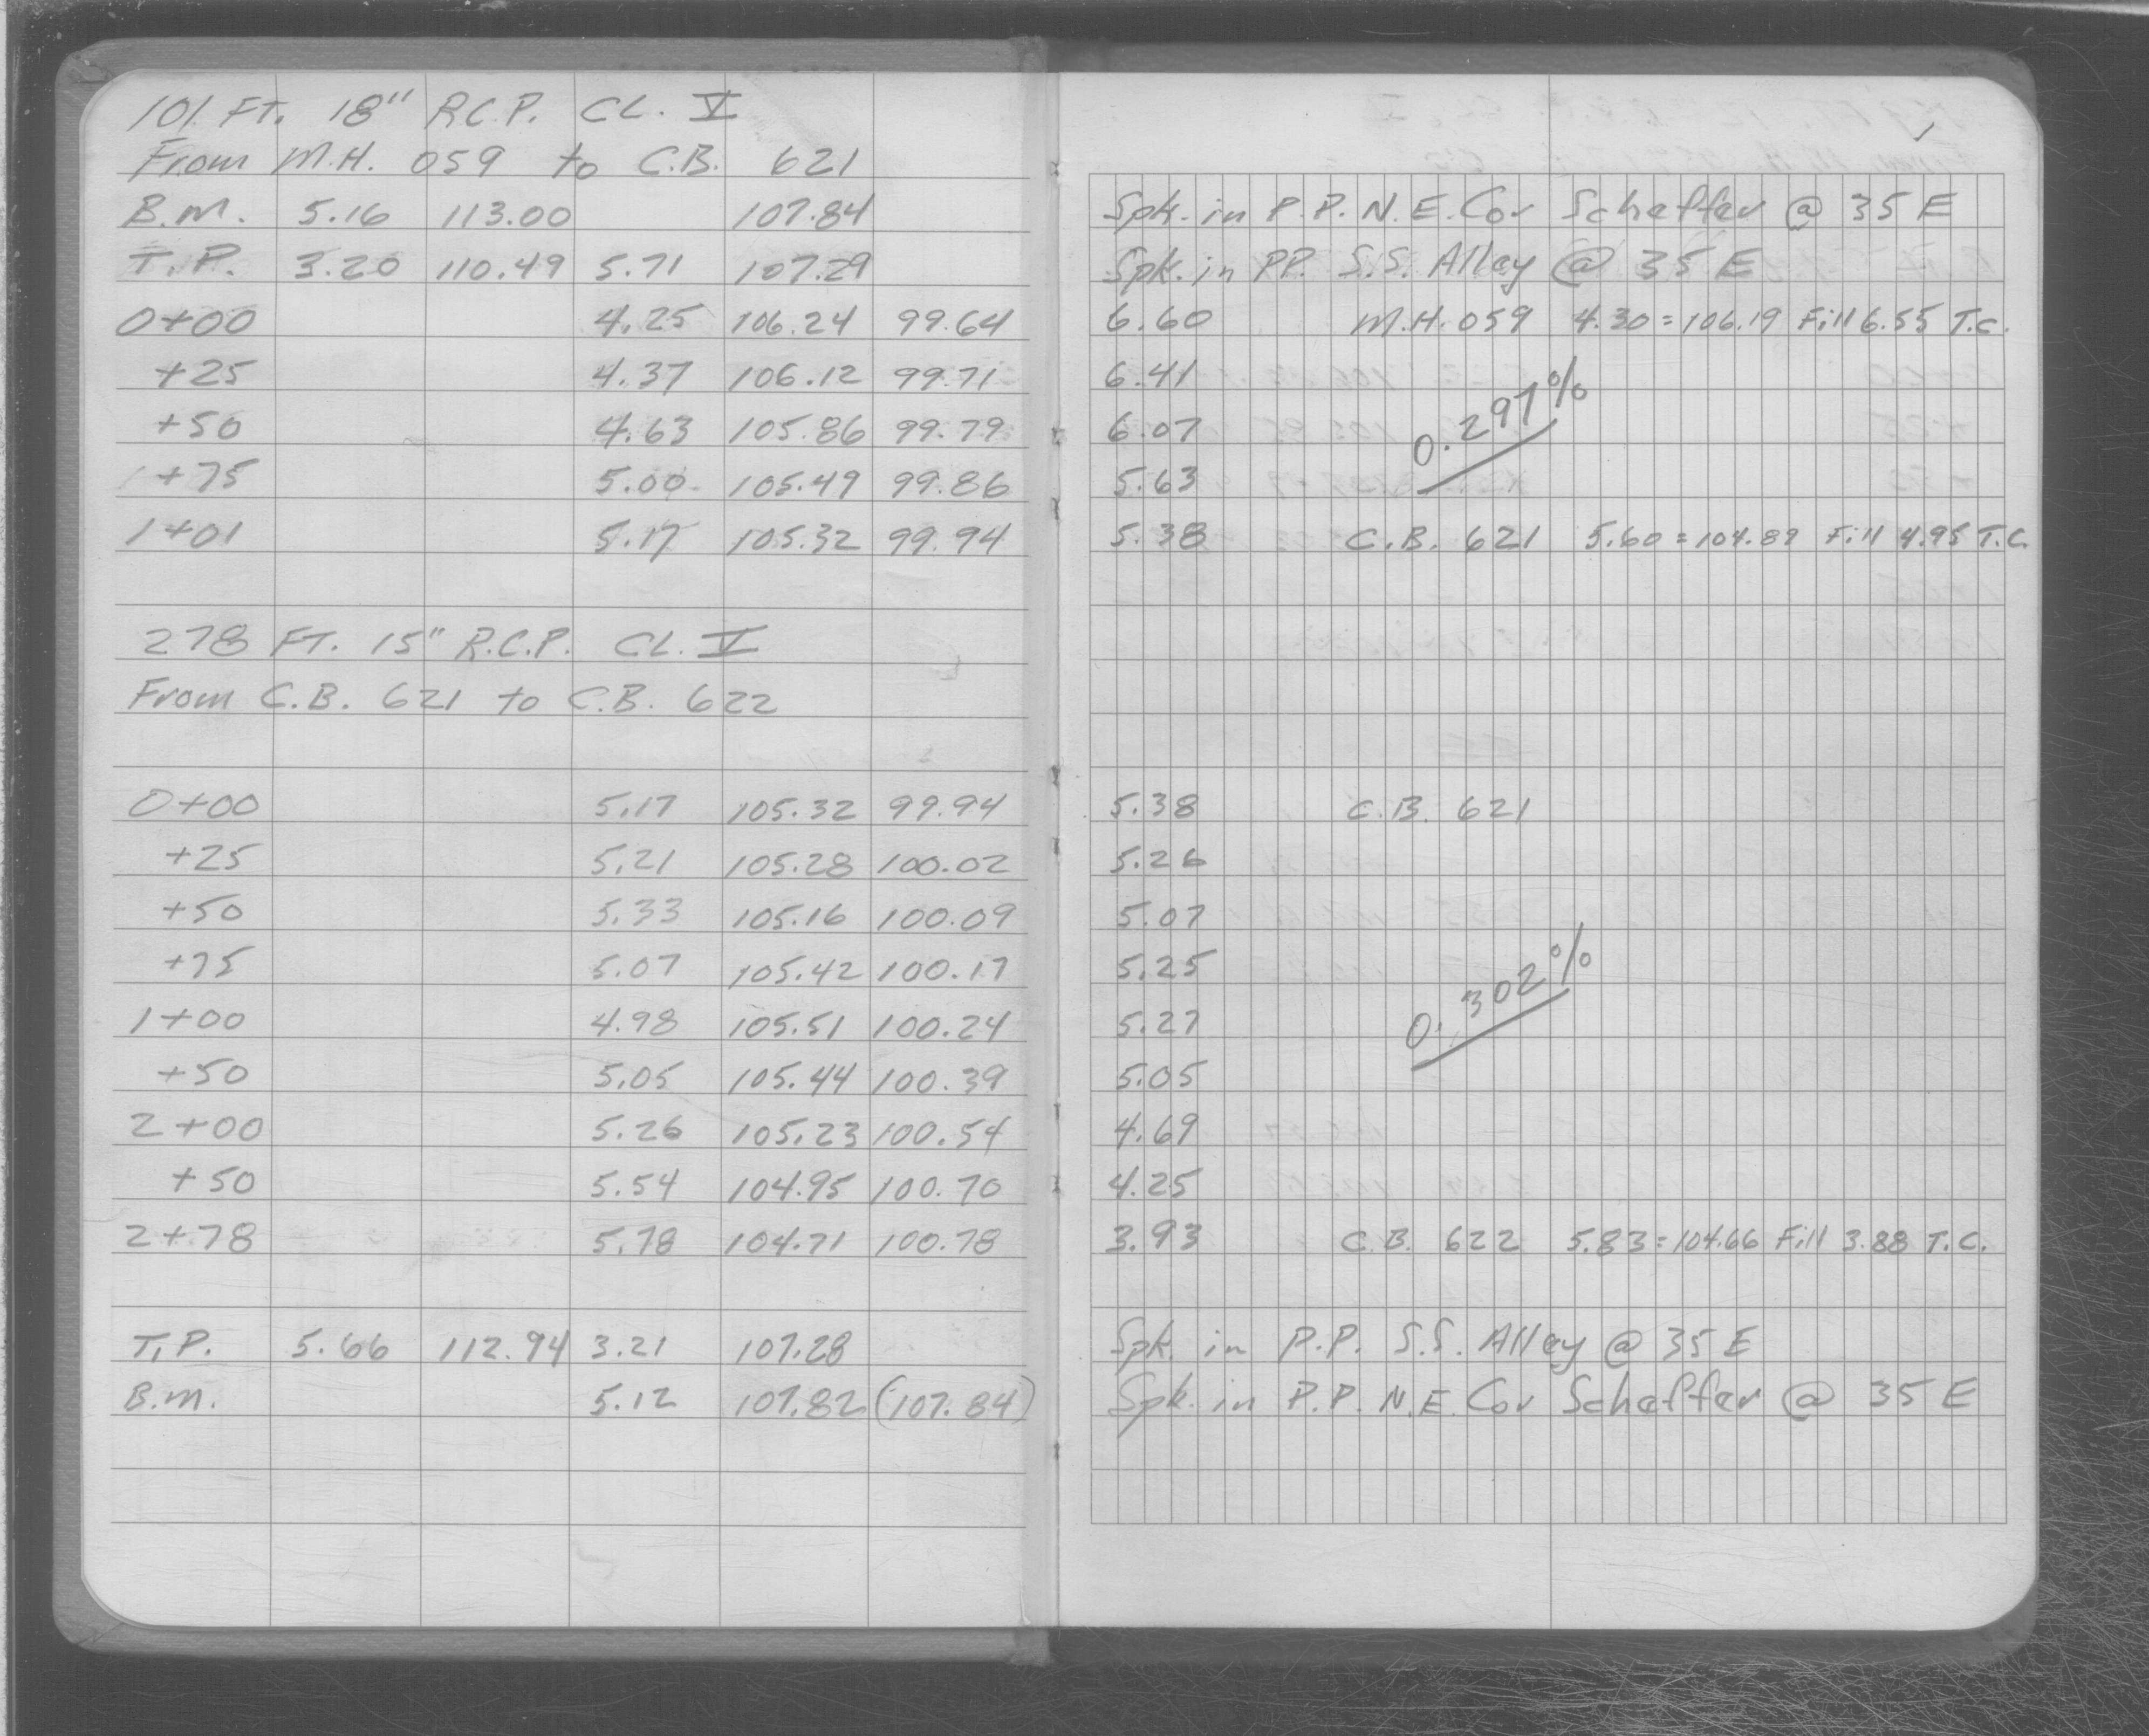 101 FT. 18" R.C.P. CL. V
From M.H. 059 to C.B. 621
B.M. 5.16 113.00 107.84
T.P. 3.20 110.49 5.71 107.29
0+00 4.25 106.24 99.64
+25 4.37 106.12 99.71
+50 4.63 105.86 99.79
+75 5.00 105.49 99.86
1+01 5.17 105.32 99.94
278 FT. 15" R.C.P. CL. V
From C.B. 621 to C.B. 622
0+00 5.17 105.32 99.94
+25 5.21 105.28 100.02
+50 5.33 105.16 100.09
+75 5.07 105.42 100.17
1+00 4.98 105.51 100.24
+50 5.05 105.44 100.39
2+00 5.26 105.23 100.54
+50 5.54 104.95 100.70
2+78 5.78 104.71 100.78
T.P. 5.66 112.94 3.21 107.28
B.M. 5.12 107.82 (107.84)
1
Spk. in P.P. N.E. Cor Schaffer @ 35 E
Spk. in PP. S.S. Alley @ 35 E
6.60 M.H. 059 4.30 = 106.19 Fill 6.55 T.C.
6.41
6.07 0.297%
5.63
5.38 C.B. 621 5.60 = 104.89 Fill 4.95 T.C.
5.38 C.B. 621
5.26
5.07
5.25
5.27 0.302%
5.05
4.69
4.25
3.93 C.B. 622 5.83 = 104.66 Fill 3.88 T.C.
Spk. in P.P. S.S. Alley @ 35 E
Spk. in P.P. N.E. Cor Schaffer @ 35 E